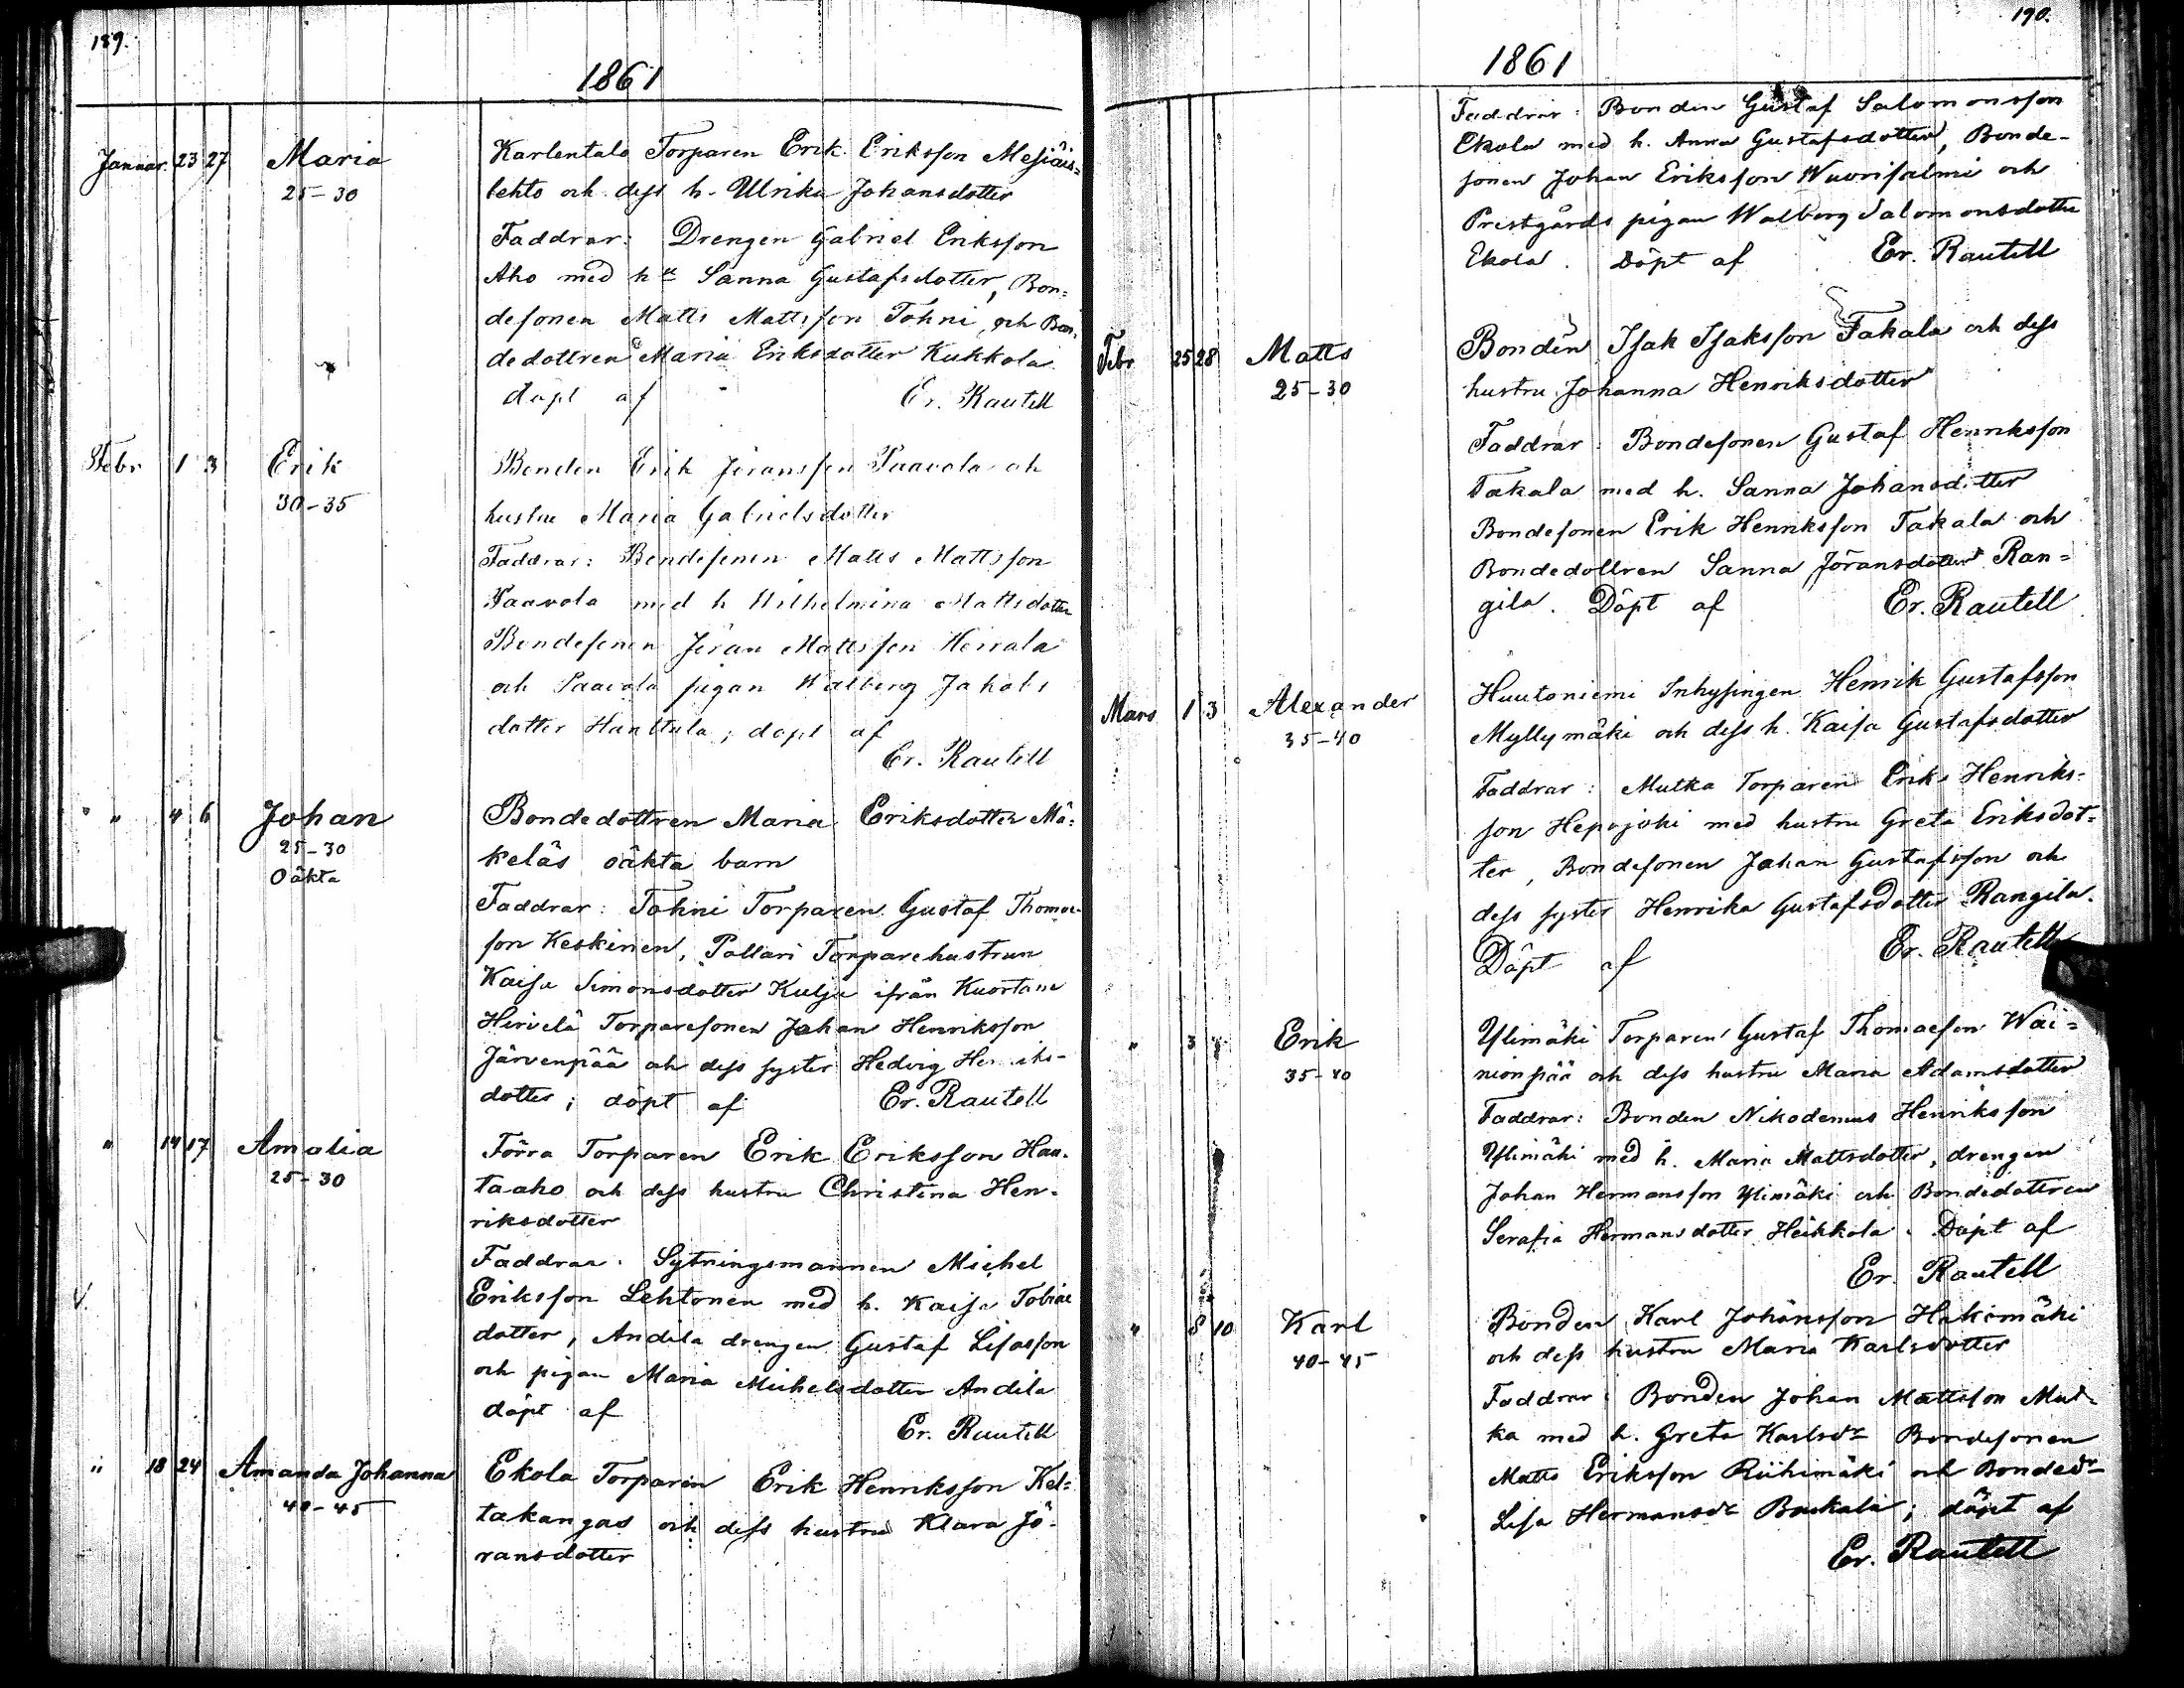 189.
1861
Januar. 23 27 Maria Karlentalo Torparen Erik Eriksson Mesiäis=
25-30 lehto och dess h. Ulrika Johansdotter
Faddrar: Drengen Gabriel Eriksson
Aho med h Sanna Gustafsdotter, Bon=
desonen Matts Mattsson Tohni, och Bon
dedottren Maria Eriksdotter Kukkola
döpt af Er. Rautell
Febr 1 3 Erik Bonden Erik Jöransson Paavola och
30-35 hustru Maria Gabrielsdotter
Faddrar: Bondesonen Matts Mattsson
Paavola med h Wilhelmina Mattsdotter
Bondesonen Jöran Mattsson Herrala
och Paavola pigan Walborg Jakobs
dotter Hanttula; döpt af
Er. Rautell
" 4 6 Johan Bondedottren Maria Eriksdotter Mä=
25-30 keläs oäkta barn
Oäkta
Faddrar: Tohni Torparen Gustaf Thomas-
son Keskinen, Pollari Torparehustrun
Kaisa Simonsdotter Kulju ifrån Kuortane
Hirvelä Torparesonen Johan Henriksson
Järvenpää och dess syster Hedvig Henriks-
dotter; döpt af Er. Rautell
" 14 17 Amalia Törra Torparen Erik Eriksson Hau-
25-30 taaho och dess hustru Christina Hen-
riksdotter
Faddrar. Sytningsmannen Michel
Eriksson Lehtonen med h. Kaisa Tobiae
dotter, Andila drengen Gustaf Lisasson
och pigan Maria Michelsdotter Andila
döpt af Er. Rautell
" 18 24 Amanda Johanna Ekola Torparen Erik Henriksson Kel=
40-45 takangas och dess hustru Klara Jö-
ransdotter
190.
1861
Faddrar: Bonden Gustaf Salomonsson
Ekola med h. Anna Gustafsdotter, Bonde-
sonen Johan Eriksson Wuorisalmi och
Prestgårds pigan Walborg Salomonsdotter
Ekola. Döpt af Er. Rautell
Febr 25 28 Matts Bonden Isak Isaksson Takala och dess
25-30 hustru Johanna Henriksdotter
Faddrar: Bondesonen Gustaf Henriksson
Takala med h. Sanna Johansdotter
Bondesonen Erik Henriksson Takala och
Bondedottren Sanna Jöransdotter Ran=
gila. Döpt af Er. Rautell
Mars 1 3 Alexander Huutoniemi Inhysingen Henrik Gustafsson
35-40 Myllymäki och dess h. Kaisa Gustafsdotter
Faddrar: Mutka Torparen Eriks Henriks-
son Hepojoki med hustru Greta Eriksdot-
ter, Bondesonen Johan Gustafsson och
dess syster Henrika Gustafsdotter Rangila.
Döpt af Er. Rautell
" 3 Erik Ylimäki Torparen Gustaf Thomaeson Wai=
35-40 nionpää och dess hustru Maria Adamsdotter
Faddrar: Bonden Nikodemus Henriksson
Ylimäki med h. Maria Mattsdotter, drengen
Johan Hermansson Ylimäki och Bondedottren
Serafia Hermansdotter Heikkola. Döpt af
Er. Rautell
" 8 10 Karl Bonden Karl Johansson Hakomäki
40-45 och dess hustru Maria Karlsdotter
Faddrar: Bonden Johan Mattsson Mut-
ka med h. Greta Karlsdr Bondesonen
Matts Eriksson Riihimäki och Bondedr
Lisa Hermansdr; döpt af
Er. Rautell